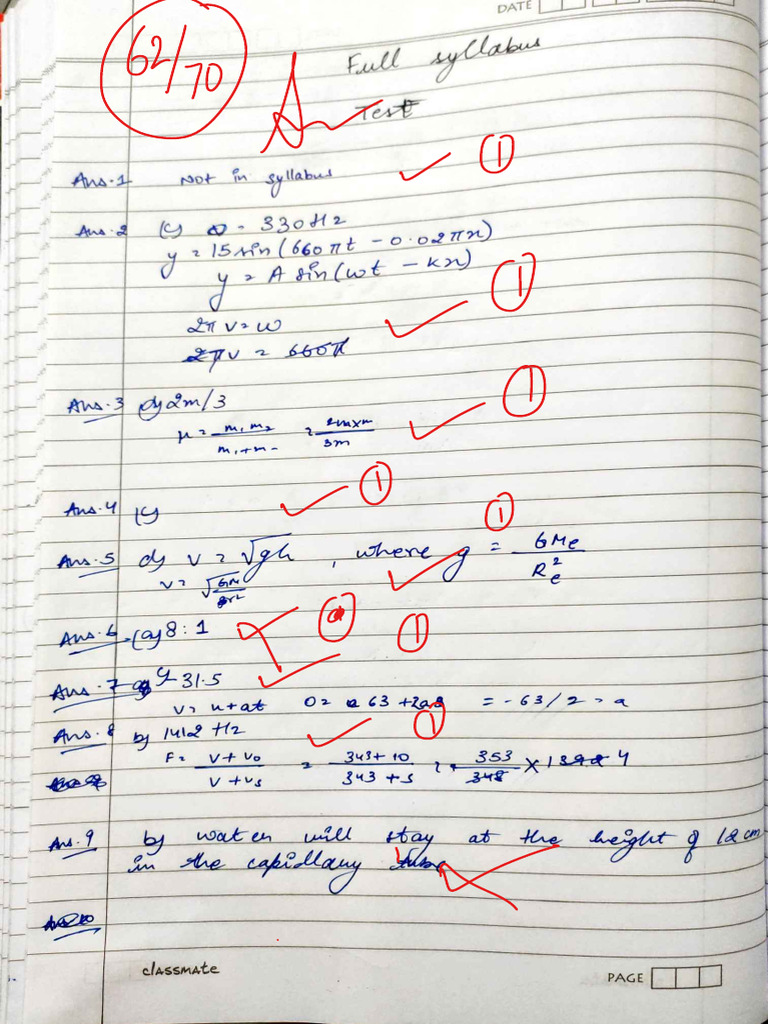 DATE
62/70
Full syllabus
Test
Ans.1 Not in syllabus
1
Ans.2 (c) υ = 330Hz
y = 15 sin(660πt - 0.02πx)
y = A sin(ωt - kx)
1
2πν = ω
2πν = 660π
Ans.3 2m/3
1
μ = m₁m₂/m₁+m₂ = 2m×m/3m
Ans.4 (c)
1
Ans.5 v = √gh, where g = GMe/Re²
1
Ans.6 (a) 8:1
Ans.7 -31.5
1
v = u+at = -63/2 = a
Ans.8 b) 1412 Hz
1
F = v+vo/v+vs = 343+10/343+5 = 353/348 ×
Ans.9 b) water will stay at the height of 12 cm
in the capillary tube
classmate
PAGE